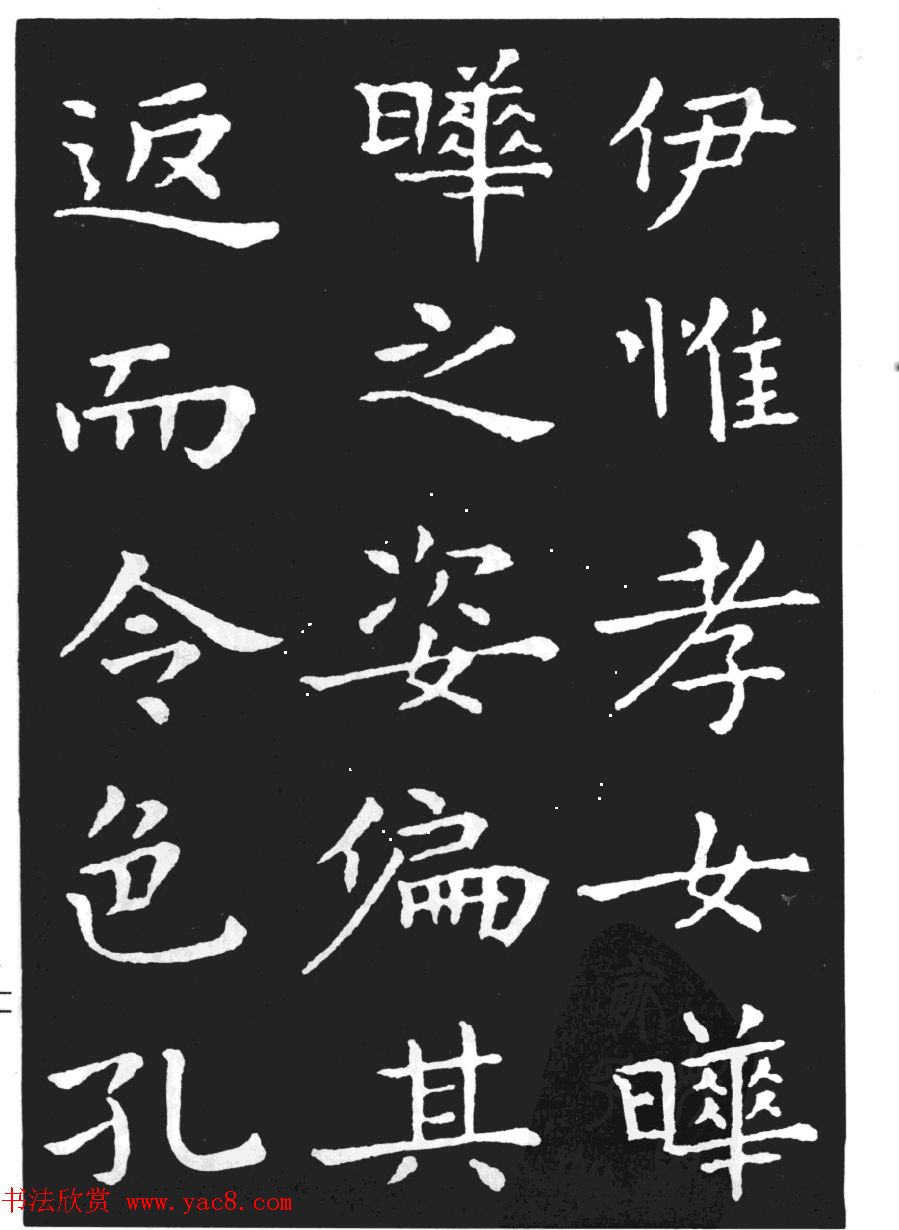 伊惟孝女曄
曄之姿偏其
返而令色孔
书法欣赏 www.yac8.com